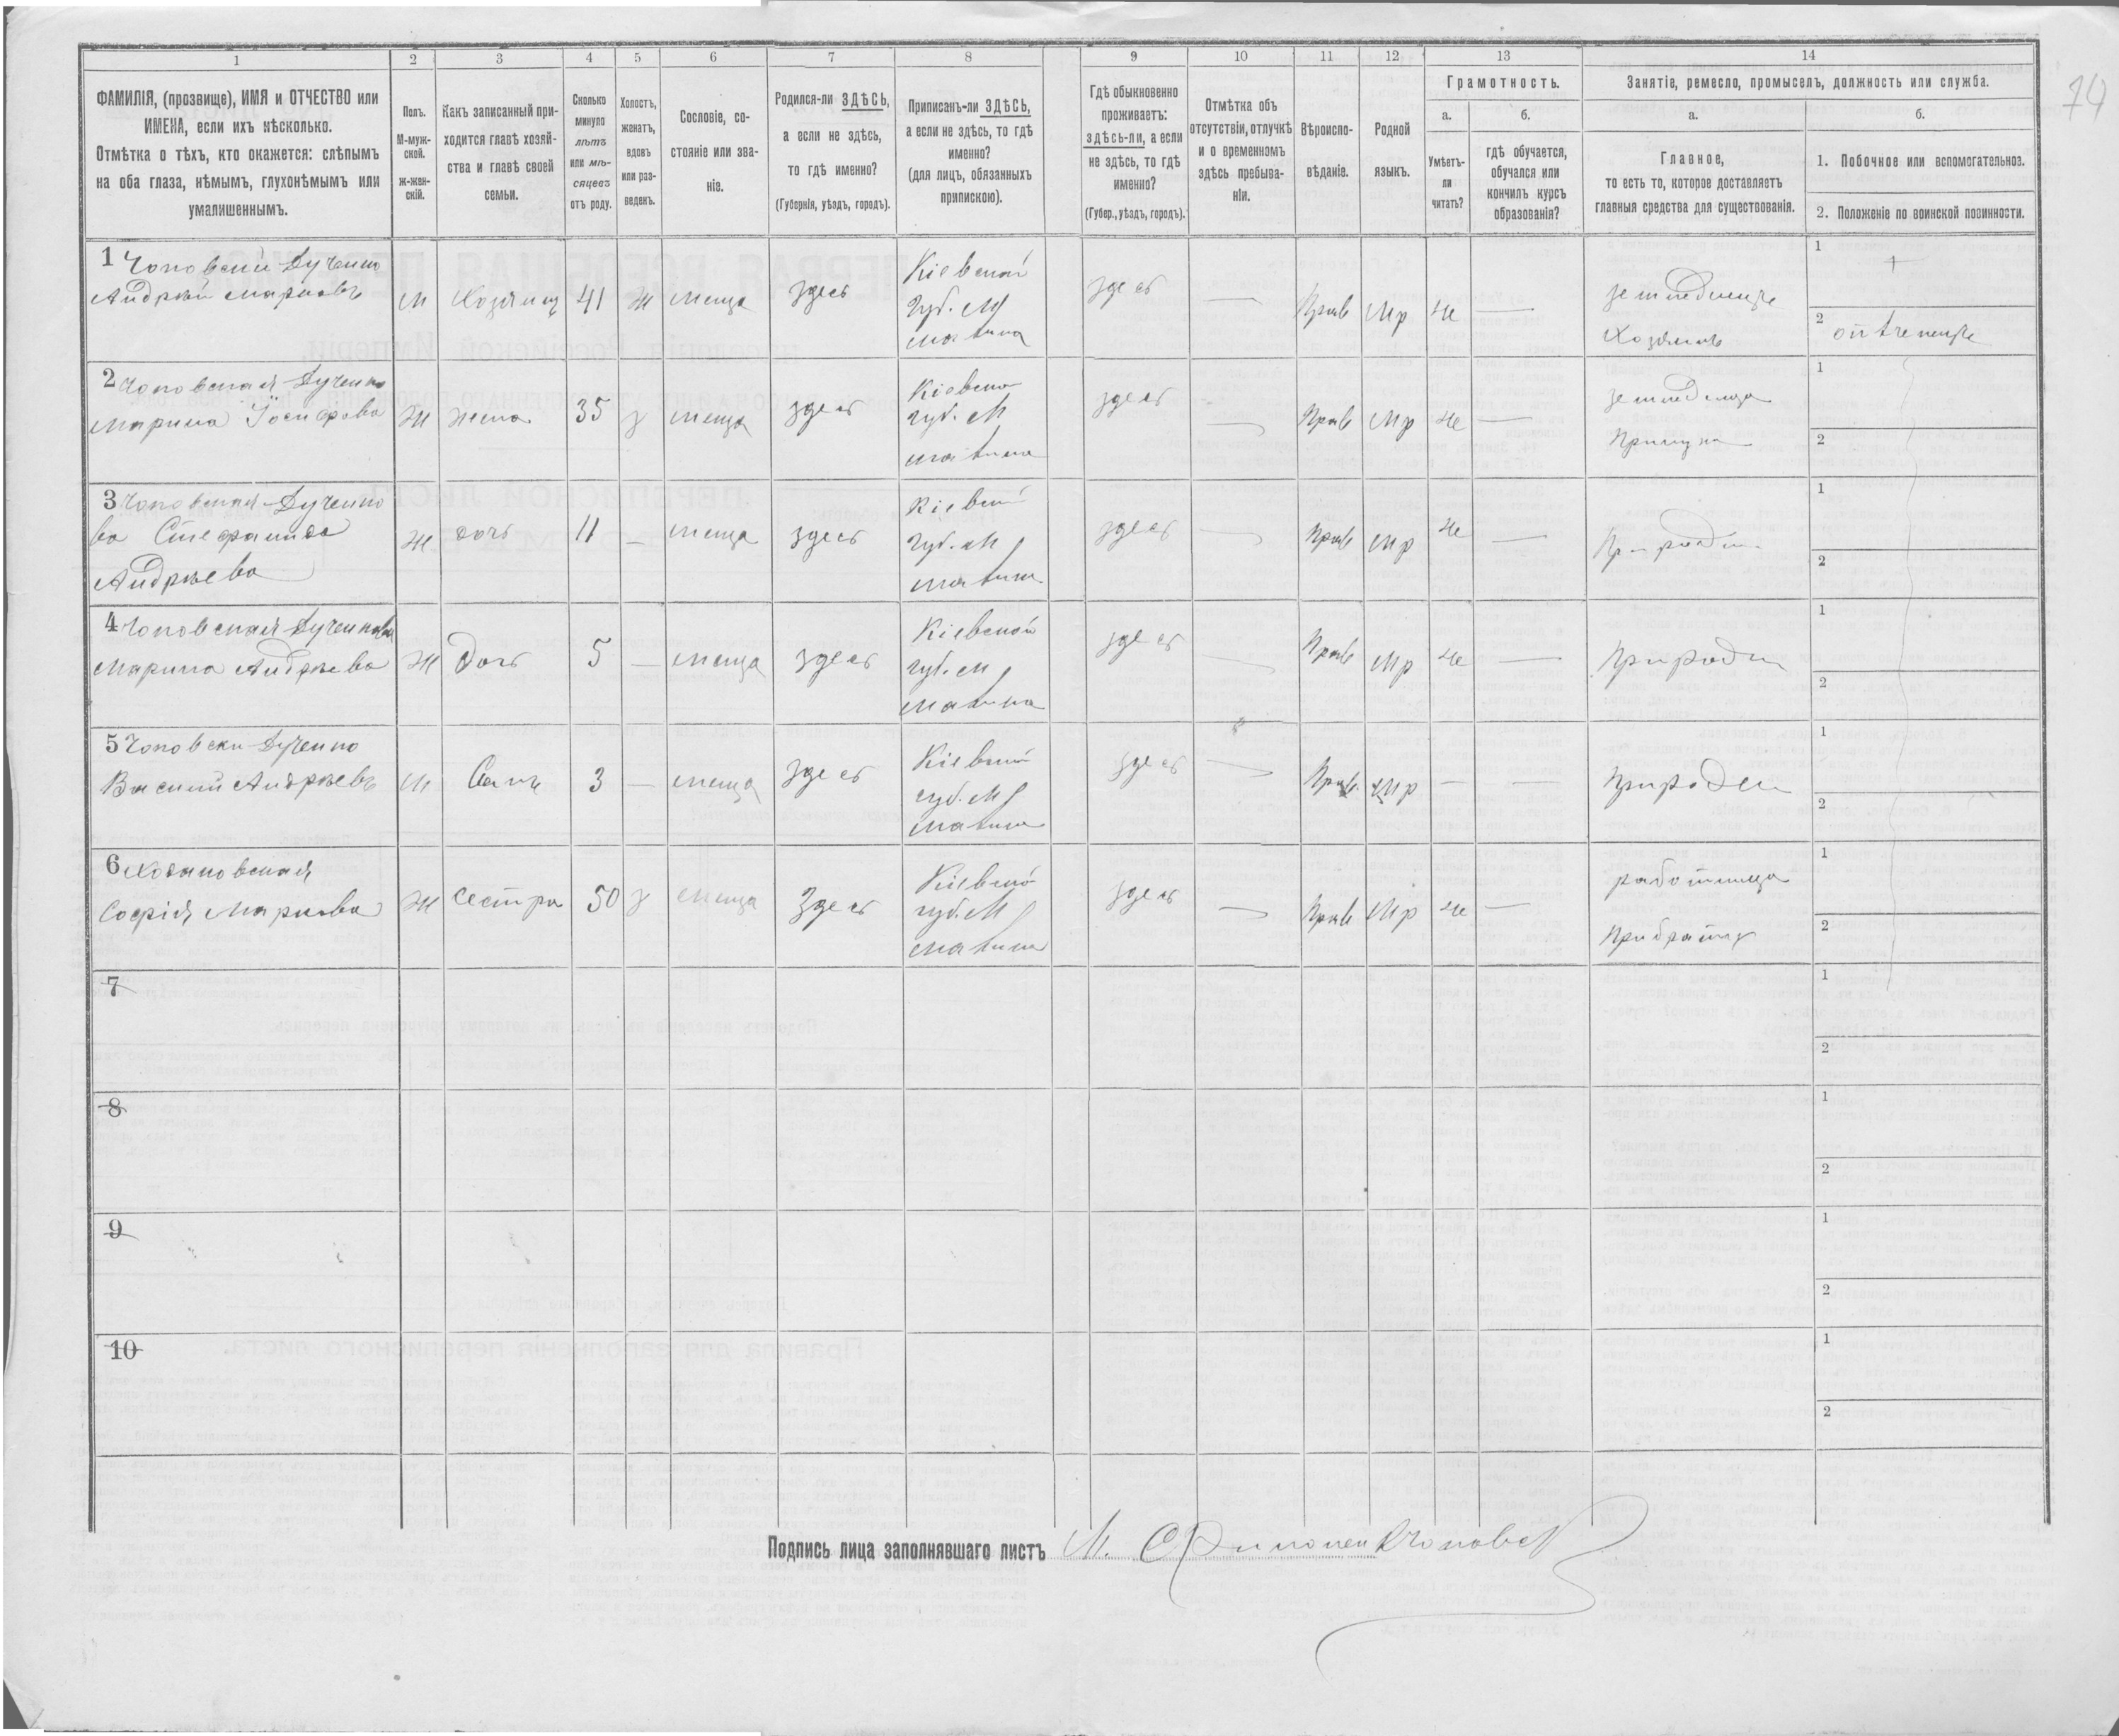 74
1
2
3
4
5
6
7
8
9
10
11
12
13
14
ФАМИЛІЯ, (прозвище), ИМЯ и ОТЧЕСТВО или
ИМЕНА, если ихъ нѣсколько.
Отмѣтка о тѣхъ, кто окажется: слѣпымъ
на оба глаза, нѣмымъ, глухонѣмымъ или
умалишеннымъ.
Полъ.
М-муж-
ской.
Ж-жен-
скій.
Какъ записанный при-
ходится главѣ хозяй-
ства и главѣ своей
семьи.
Сколько
минуло
лѣтъ
или мѣ-
сяцевъ
отъ роду.
Холостъ,
женатъ,
вдовъ
или раз-
веденъ.
Сословіе, со-
стояніе или зва-
ніе.
Родился-ли ЗДѢСЬ,
а если не здѣсь,
то гдѣ именно?
(Губернія, уѣздъ, городъ).
Приписанъ-ли ЗДѢСЬ,
а если не здѣсь, то гдѣ
именно?
(для лицъ, обязанныхъ
припискою).
Гдѣ обыкновенно
проживаетъ:
здѣсь-ли, а если
не здѣсь, то гдѣ
именно?
(Губер., уѣздъ, городъ).
Отмѣтка объ
отсутствіи, отлучкѣ
и о временномъ
здѣсь пребыва-
ніи.
Вѣроиспо-
вѣданіе.
Родной
языкъ.
Грамотность.
а.
Умѣетъ-
ли
читать?
б.
гдѣ обучается,
обучался или
кончилъ курсъ
образованія?
Занятіе, ремесло, промыселъ, должность или служба.
а.
Главное,
то есть то, которое доставляетъ
главныя средства для существованія.
б.
1. Побочное или вспомогательное.
2. Положеніе по воинской повинности.
1 Чоповски Дученко
Андрѣй Марковъ
М Хозяинъ 41 Ж меща здесь
Кіевской
Губ. М
здесь — Прав Мр Не —
Хозяинъ
1 +
2
2 Чоповская Дученко
Марина
Ж жена 35 з меща здесь
губ. М
здесь — Прав Мр Не —
1
2
3 Чоповская-Дученко
ва Стефанида
Андрѣева
Ж дочь 11 — меща здесь
губ. М
здесь — Прав Мр Не —
1
2
4 Чоповская Дученкова
Марина Андрѣева
Ж Дочь 5 — меща здесь
Кіевской
губ. М
здесь — Прав Мр Не —
1
2
5 Чоповски Дученко
Василий Андрѣевъ
М Сынъ 3 — меща здесь
губ. М
здесь — Прав Мр — —
1
2
6
Софія Маркова
Ж сестра 50 з меща Здесь
губ. М
здесь — Прав Мр Не —
работница
При братѣ
1
2
7
1
2
8
1
2
9
1
2
10
1
2
Подпись лица заполнявшаго листъ М.